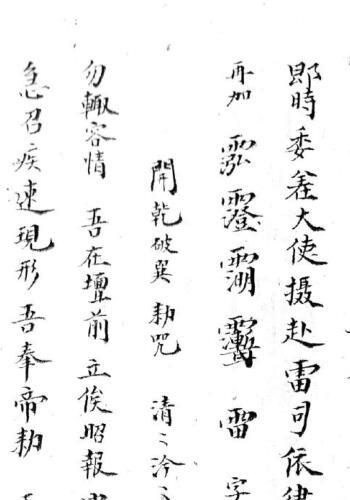 即時委差大使摄赴雷司依律
再加 雷 字
開乾破巽勅咒 清〻冷
勿輙容情 吾在壇前 立俟昭報
急召疾速現形 吾奉帝勅